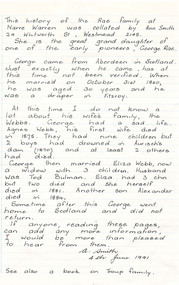 This history of the Rae family at
Narre Warren was collated by Ann Smith
2a Whitworth St. Westmead 2145.
She is the great grand daughter of
one of the early pioneers, George Rae.
George came from Aberdeen in Scotland.
but exactly when he came, has at
this time not been verified. When
he married on October 3rd 1860,
he was aged 30 years and he
was a draper in Fitzroy.
At this time I do not know a
lot about his wife's family, the
Webbs. George had a sad life
Agnes Webb, his first wife died
in 1875. They had nine children but
3 boys had drowned in
dam and at least 2 others
had died.
George then married Eliza Webb, now
a widow with 3 children. Husband
was Ted Bulman. Eliza had 3 chn
but two died and she herself
died in 1881. Another son Alexander
died in 1884.
Sometime after this George went
home to Scotland and did not
return.
If anyone, reading these pages,
can add any more information,
I would be more than pleased
to hear from them.
A. Smith
4th June 1991
See also a book on Troup family.